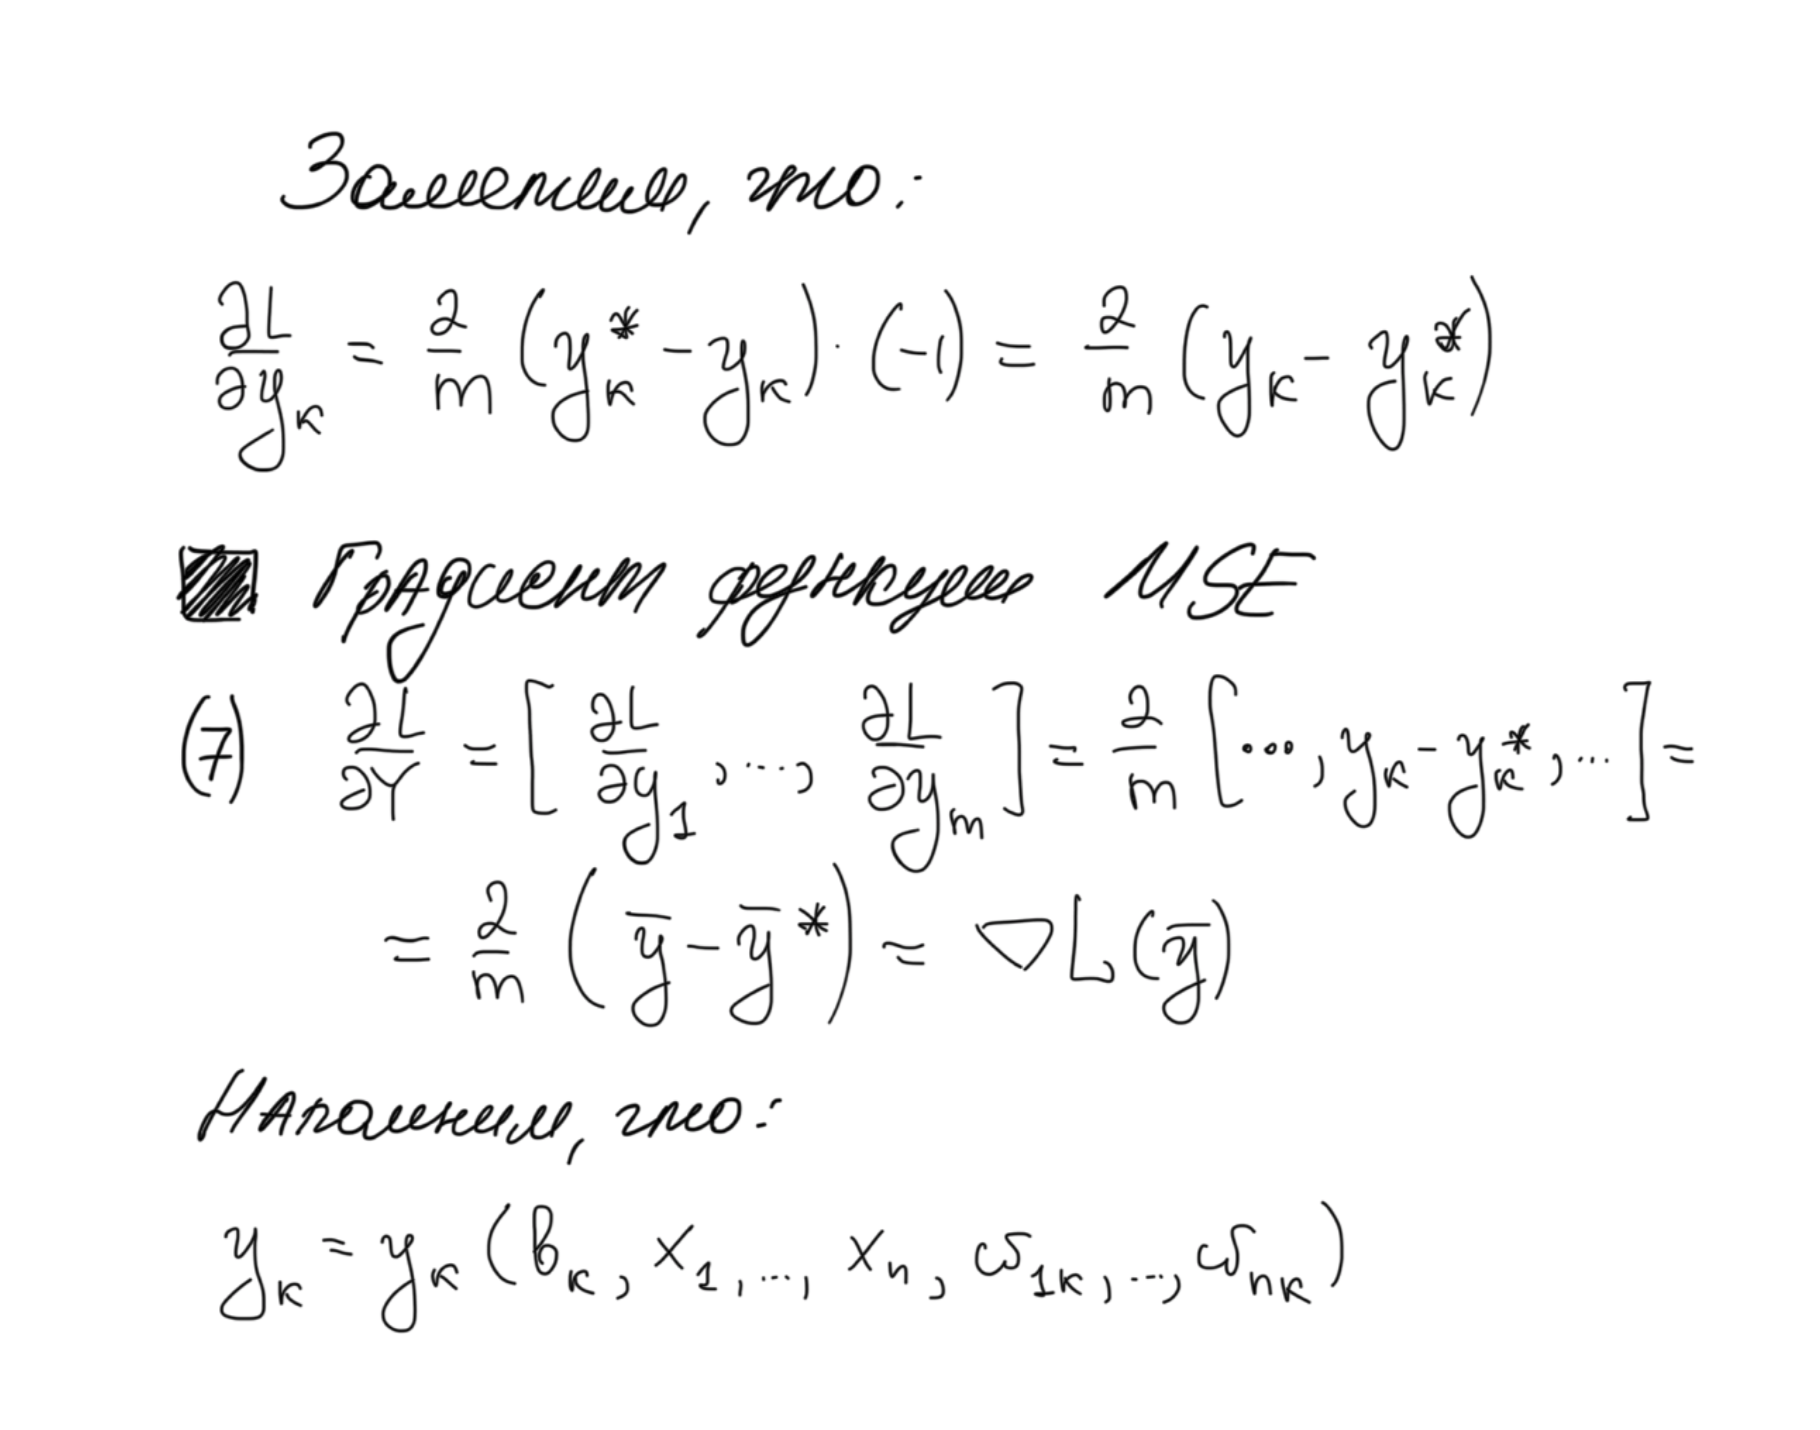 Заметим, что:
∂L/∂y_k = 2/m (y_k^* - y_k) · (-1) = 2/m (y_k - y_k^*)
Градиент функции MSE
(7) ∂L/∂Y = [∂L/∂y_1, ..., ∂L/∂y_m] = 2/m [..., y_k - y_k^*, ...] =
= 2/m (ȳ - ȳ^*) = ∇L(ȳ)
Напомним, что:
y_k = y_k (b_k, x_1, ..., x_n, ω_1k, ..., ω_nk)